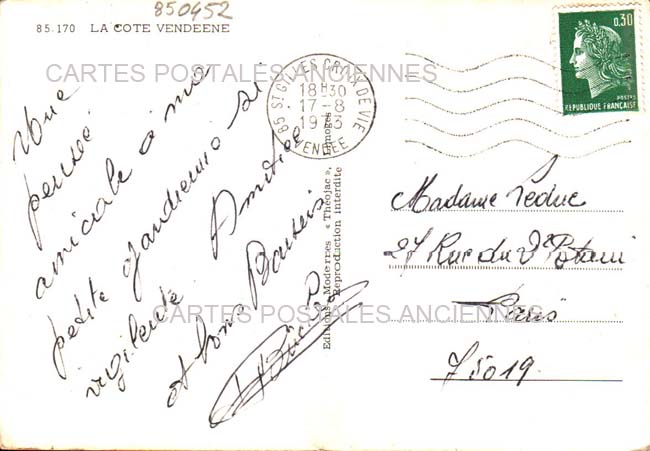 850452
85.170 LA COTE VENDEENE
0,30
POSTES
REPUBLIQUE FRANÇAISE
85 ST GILLES CROIX DE VIE
18H30
17-8
1973
VENDEE
CARTES POSTALES ANCIENNES
Une
pensée
amicale à ma
petite gardienne si
vigilente. Amitiés
et bons Baisers
Editions Modernes « Théojac », Limoges
Reproduction interdite
Madame Leduc
27 Rue du Dr Potain
Paris
75019
CARTES POSTALES ANCIENNES